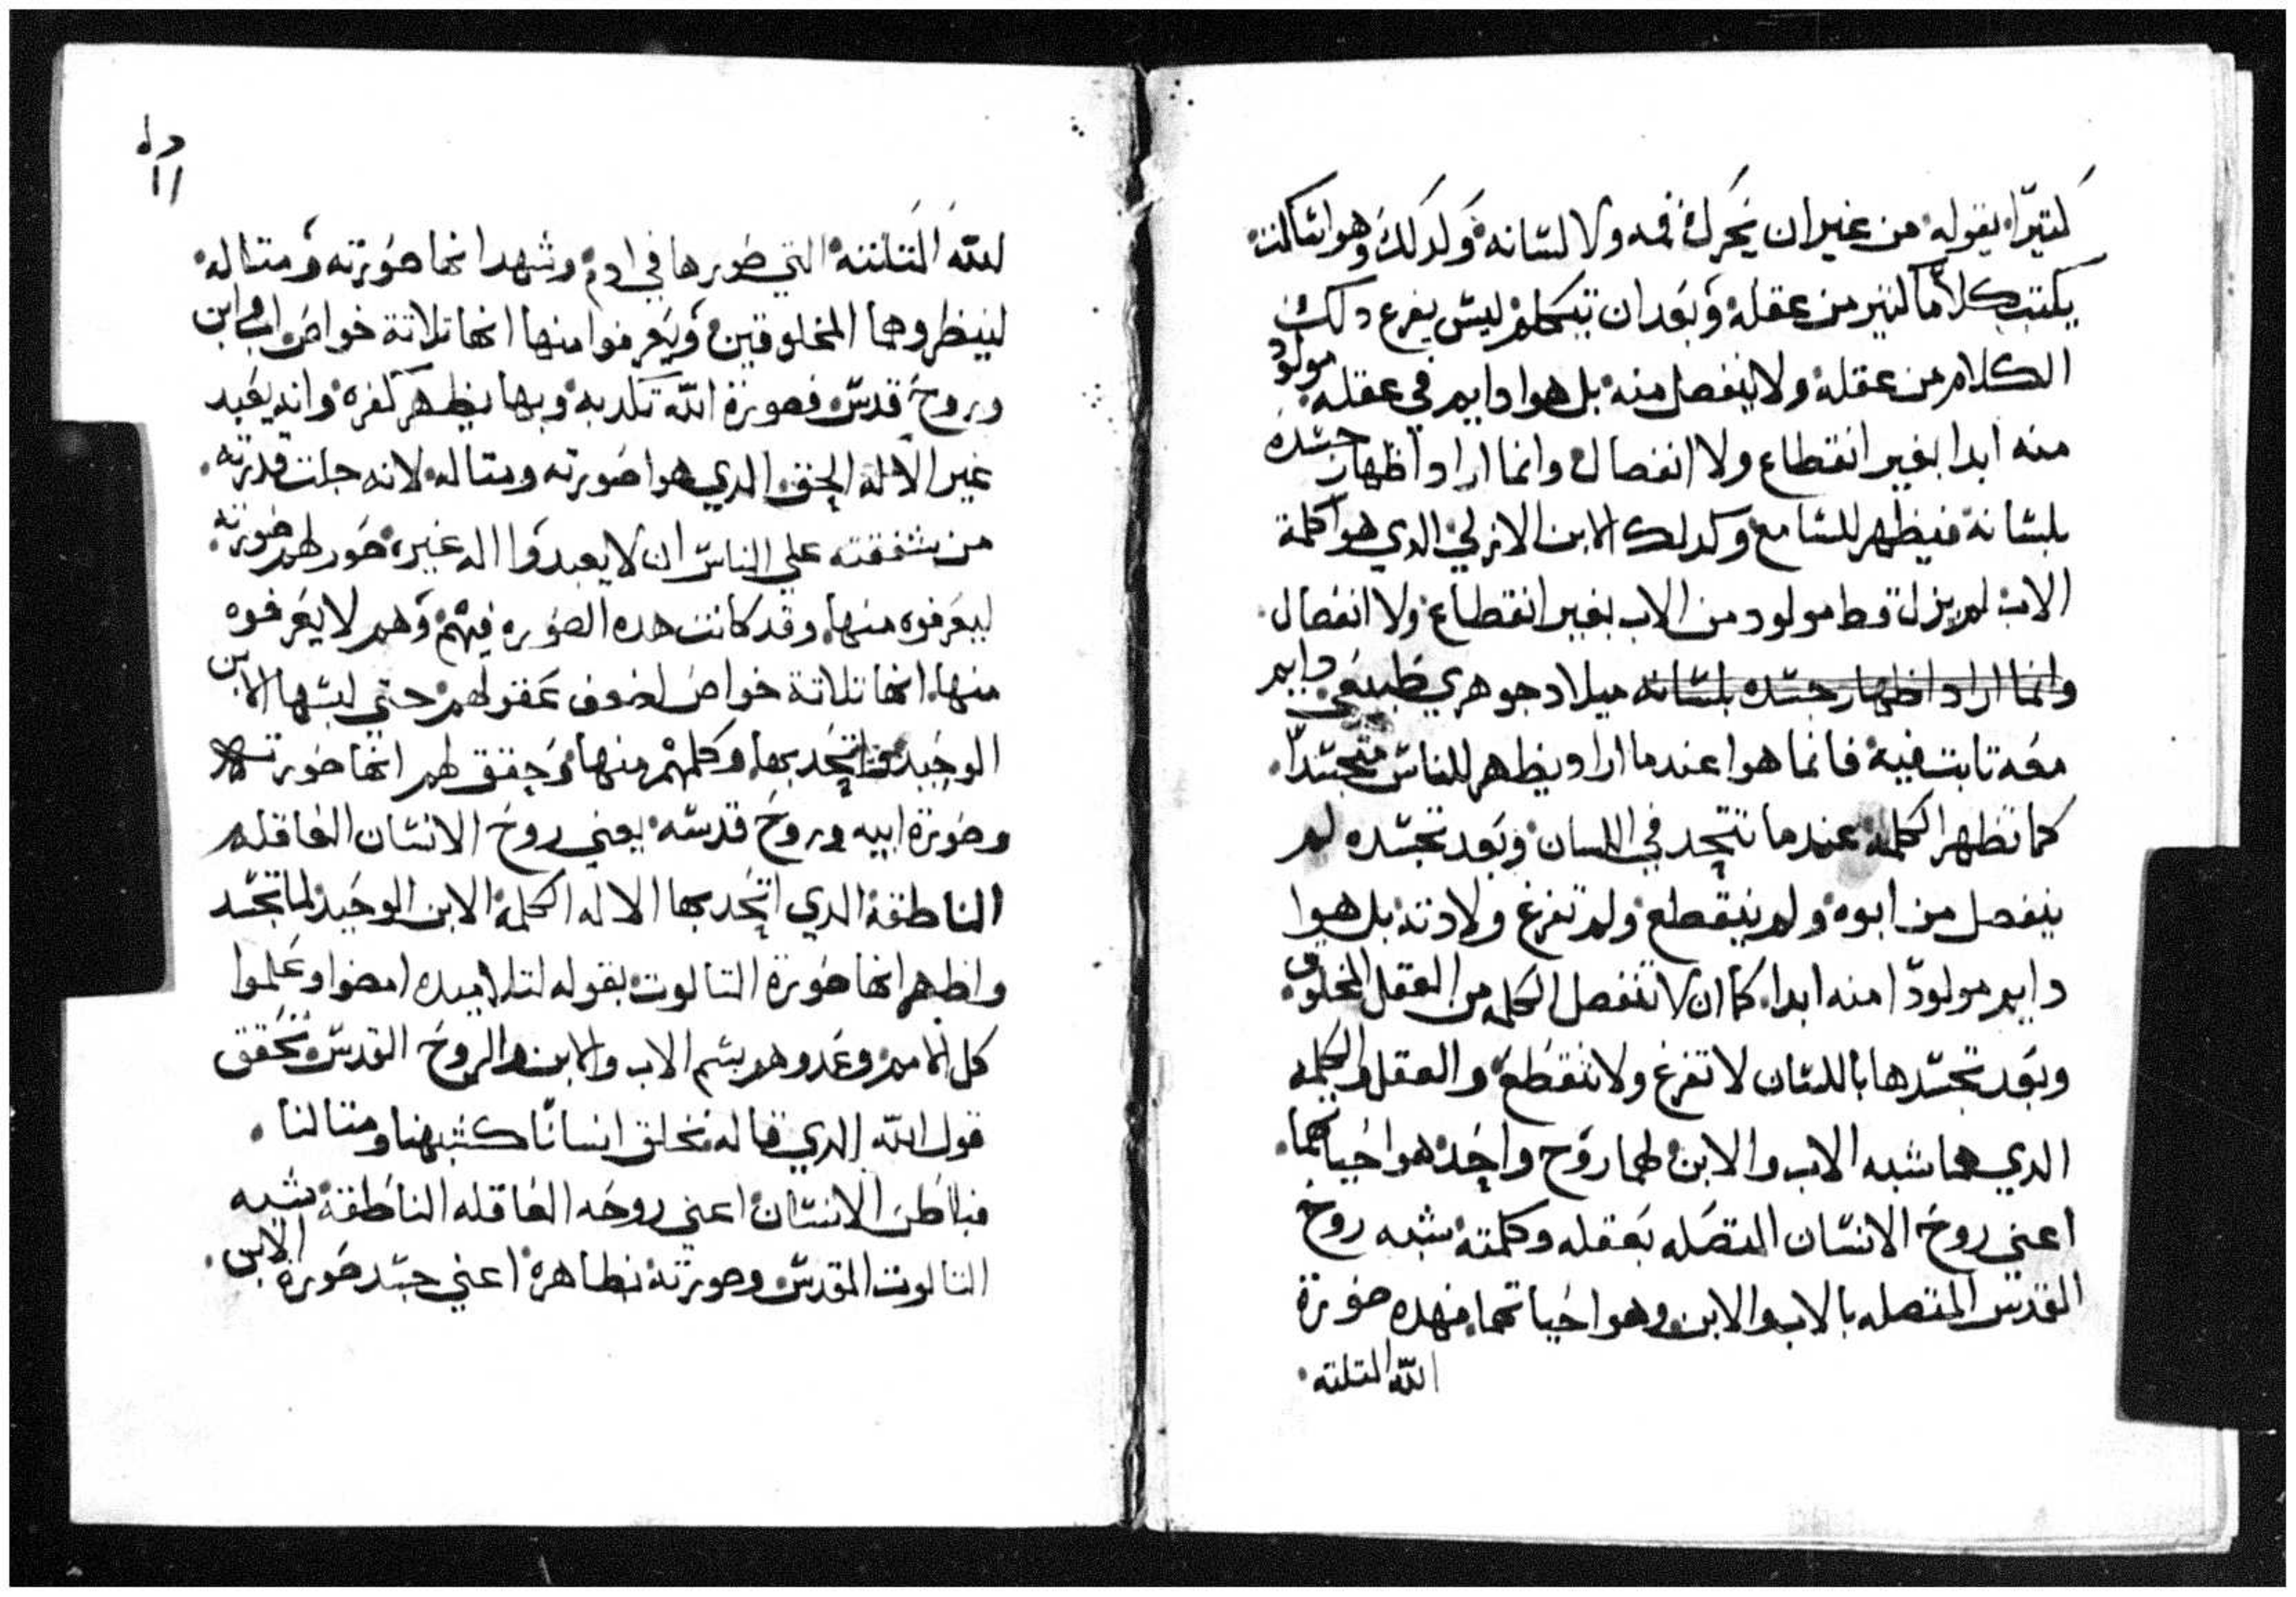 كتيرًا يقوله من غير ان يحرك فمه ولا لسانه وكدلك وهو ساكت
يكتب كلامًا كتير من عقله وبعد ان يتكلم ليس يفرغ دلك
الكلام من عقله ولا ينفصل منه بل هوا دايم في عقله مولود
منه ابدا بغير انقطاع ولا انفصال وانما اراد اظهار جسده
بلسانه فيظهر للسامع وكدلك الابن الازلي الدي هوا كلمة
الاب لم يزل قط مولود من الاب بغير انقطاع ولا انفصال
وانما اراد اظهار جسده بلسانه ميلاد جوهري طبيعي دايم
معه تابت فيه فانما هوا عندما اراد يظهر للناس متجسدًا
كما تظهر الكلمة عندما تتحد في اللسان وبعد تجسده لم
ينفصل من ابوه ولم ينقطع ولم تفرغ ولادته بل هوا
دايم مولودًا منه ابدا كما ان لا تنفصل الكلمه من العقل المخلوق
وبعد تجسدها باللسان لا تفرغ ولا تنقطع والعقل والكلمه
الدي هما شبه الاب والابن لهما روح واحد هوا حياتهما
اعني روح الانسان المتصله بعقله وكلمته شبه روح
القدس المتصله بالاب والابن وهوا حياتهما فهده صورة
الله المتلته
11
لله المتلتة التي صورها في ادم وشهد انها صورته ومتاله
لينظروها المخلوقين ويعرفوا منها انها تلاتة خواص اب وابن
وروح قدس فصورة الله تكدبه وبها يظهر كفره وانه يعبد
غير الاله الحق الدي هوا صورته ومتاله لانه جلت قدرته
من شفقته علي الناس ان لا يعبدوا اله غيره صور لهم صورته
ليعرفوه منها وقد كانت هده الصوره فيهم وهم لا يعرفوه
منها انها تلاتة خواص لضعف عقولهم حتي لبسها الابن
الوحيد اتحد بها وكلمهم منها وحقق لهم انها صورته
وصورة ابيه وروح قدسه يعني روح الانسان العاقله
الناطقه الدي اتحد بها الاله الكلمة الابن الوحيد لما تجسد
واظهر انها صورة التالوت بقوله لتلاميده امضوا وعلموا
كل الامم وعمدوهم بسم الاب والابن والروح القدس تحقق
قول الله الدي قاله نخلق انسانًا كشبهنا ومتالنا
فباطن الانسان اعني روحه العاقله الناطقة شبه
التالوت القدس وصورته نظاهرة اعني جسد صورة الابن